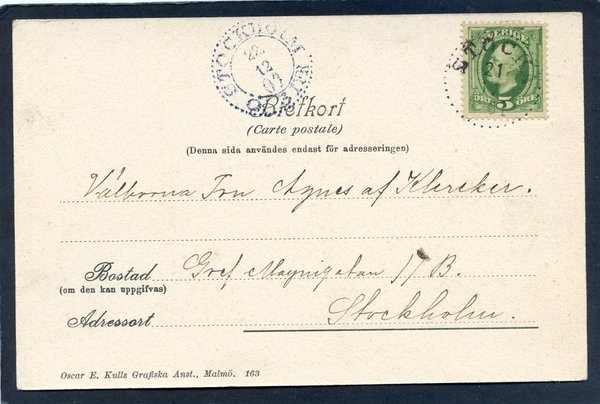 STOCKHOLM
22
12
02
SVERIGE
STOCK
21
ÖRE 5 ÖRE
Brefkort
(Carte postale)
(Denna sida användes endast för adresseringen)
Välborna Fru Agnes af Klercker.
Bostad Gref Magnigatan 17 B.
(om den kan uppgifvas)
Adressort Stockholm.
Oscar E. Kulls Grafiska Anst., Malmö. 163